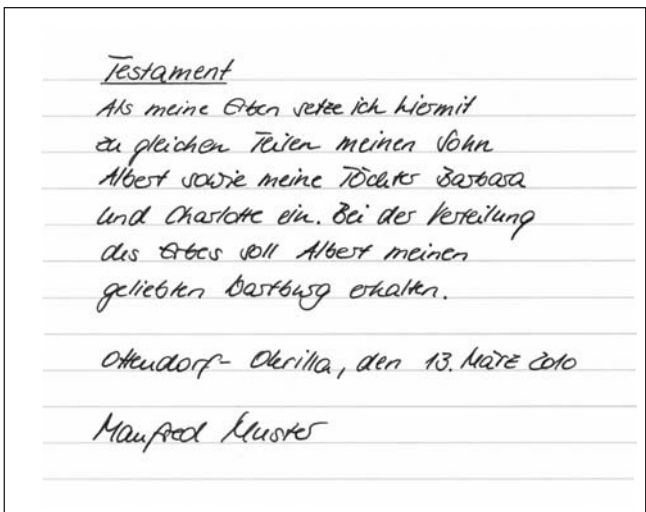 Testament
Als meine Erben setze ich hiermit
zu gleichen Teilen meinen Sohn
Albert sowie meine Töchter Barbara
und Charlotte ein. Bei der Verteilung
des Erbes soll Albert meinen
geliebten Wartburg erhalten.
Ottendorf-Okrilla, den 13. März 2010
Manfred Muster